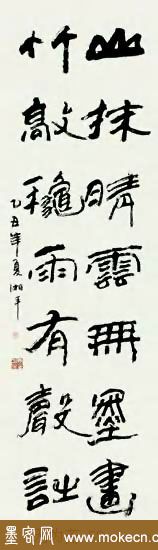 山抹晴雲無墨畫
竹敲龝雨有聲詩
乙丑年夏湘平
墨客网 www.mokecn.com